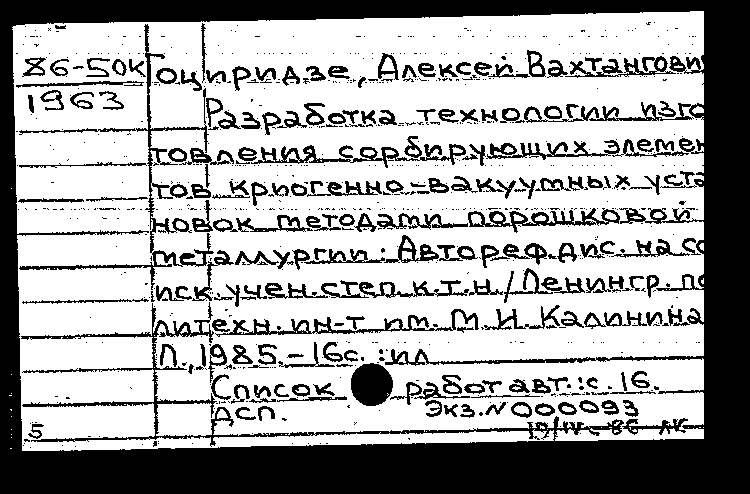 86-50к Гоциридзе, Алексей Вахтангови
1963
Разработка технологии изго
товления сорбирующих элемен
тов криогенно-вакуумных уста
новок методами порошковой
металлургии: Автореф.дис. на со
иск.учен.степ.к.т.н./Ленингр. по
литехн. ин-т им. М.И.Калинина
Л., 1985.-16с.:ил
Список работ авт.:с.16.
ДСП. Экз.N000093
5 19/IV-86 ЛК